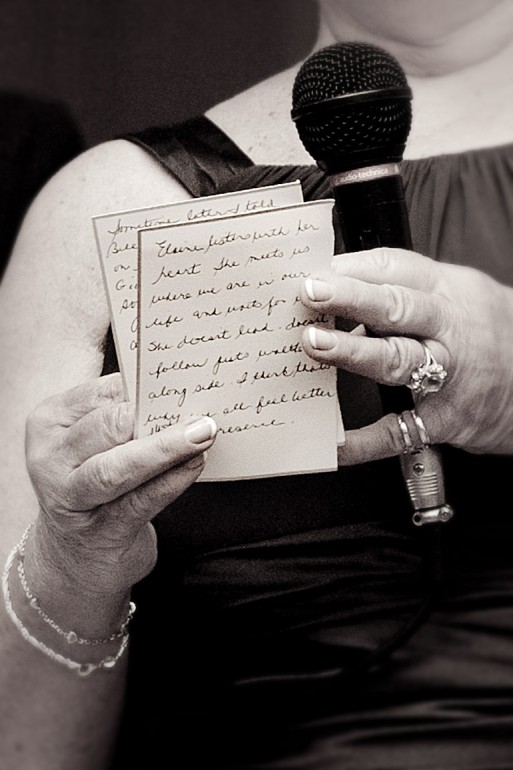 audio-technica
Sometime later I told
Bill
on
Elaine listens with her
heart. She meets us
where we are in our
life and waits for
She doesnt lead. doesnt
follow justs walks
along side. I think thats
why we all feel better
presence.